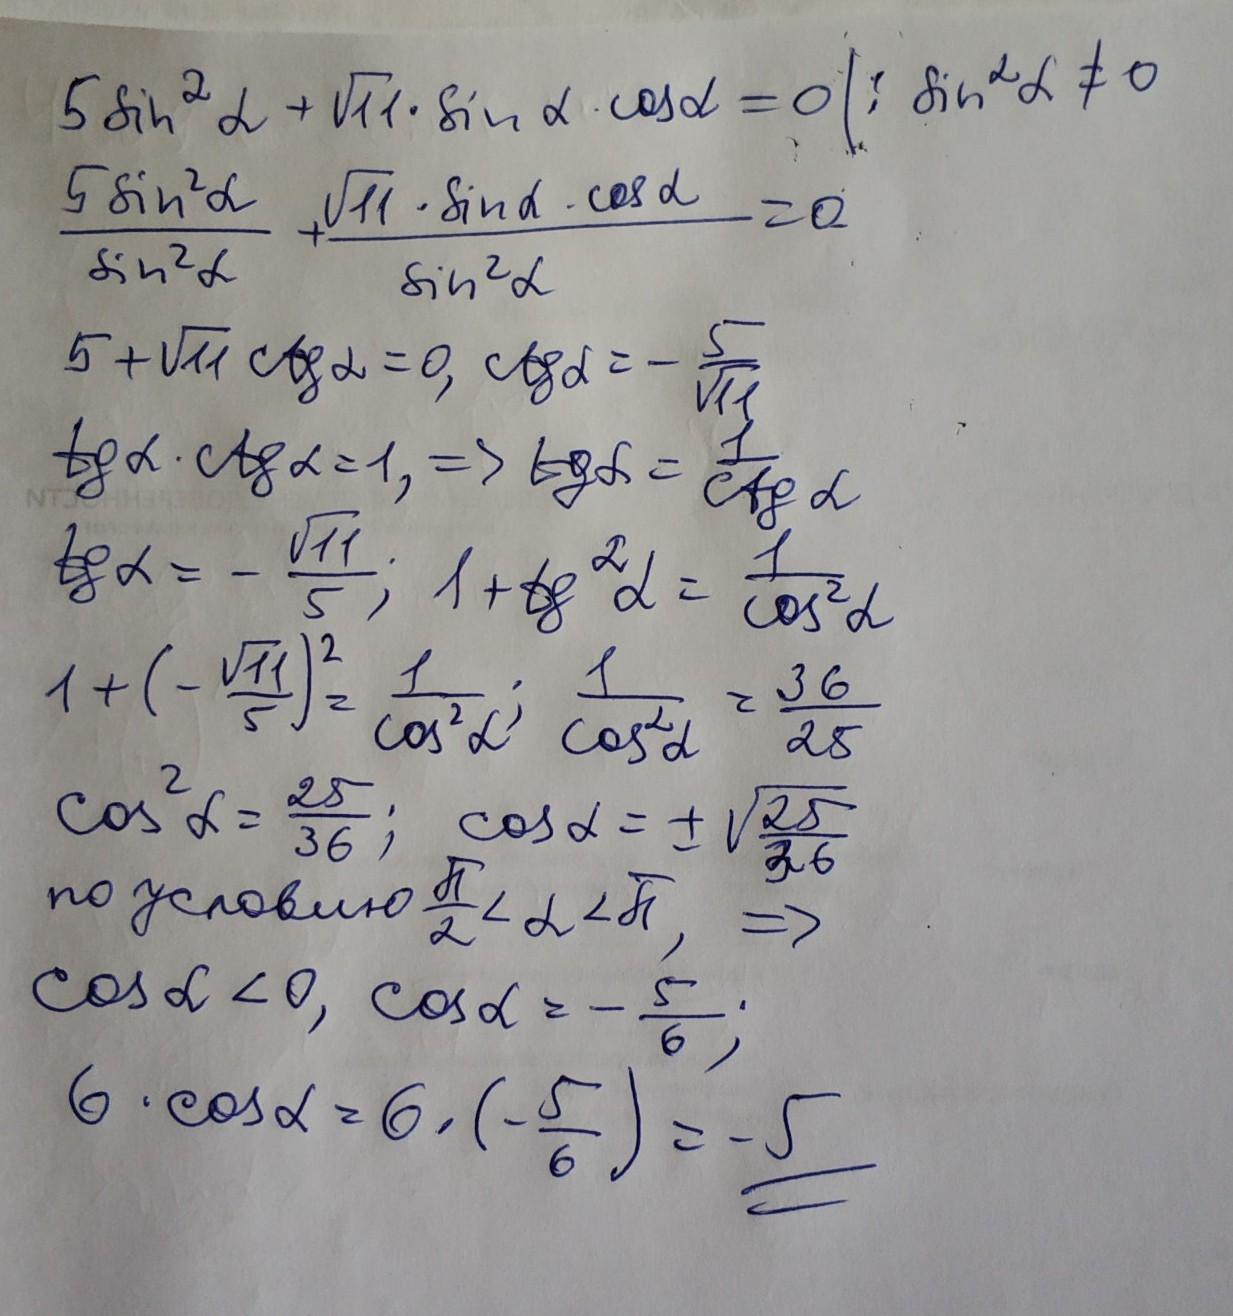 5 sin²α + √11 · sin α · cosα = 0 |: sin²α ≠ 0
5 sin²α / sin²α + √11 · sinα · cosα / sin²α = 0
5 + √11 ctgα = 0, ctgα = - 5/√11
tgα · ctgα = 1, => tgα = 1/ctgα
tgα = - √11/5; 1 + tg²α = 1/cos²α
1 + (- √11/5)² = 1/cos²α; 1/cos²α = 36/25
cos²α = 25/36; cosα = ± √25/36
по условию π/2 < α < π, =>
cosα < 0, cosα = - 5/6;
6 · cosα = 6 · (- 5/6) = - 5